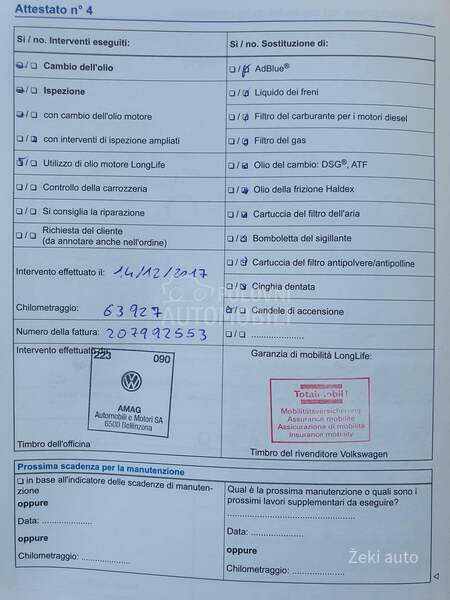 Attestato n° 4
Si / no. Interventi eseguiti:
☐/☐ Cambio dell'olio
☐/☐ Ispezione
☐/☐ con cambio dell'olio motore
☐/☐ con interventi di ispezione ampliati
☐/☐ Utilizzo di olio motore LongLife
☐/☐ Controllo della carrozzeria
☐/☐ Si consiglia la riparazione
☐/☐ Richiesta del cliente
(da annotare anche nell'ordine)
Intervento effettuato il: 14/12/2017
Chilometraggio: 63927
Numero della fattura: 207992553
Si / no. Sostituzione di:
☐/☐ AdBlue®
☐/☐ Liquido dei freni
☐/☐ Filtro del carburante per i motori diesel
☐/☐ Filtro del gas
☐/☐ Olio del cambio: DSG®, ATF
☐/☐ Olio della frizione Haldex
☐/☐ Cartuccia del filtro dell'aria
☐/☐ Bomboletta del sigillante
☐/☐ Cartuccia del filtro antipolvere/antipolline
☐/☐ Cinghia dentata
☐/☐ Candele di accensione
☐/☐ .....................
POLOVNI
AUTOMOBILI
Intervento effettuato da
223 090
AMAG
Automobili e Motori SA
6500 Bellinzona
Timbro dell'officina
Garanzia di mobilità LongLife:
Totalmobil!
Mobilitätsversicherung
Assurance mobilité
Assicurazione di mobilità
Insurance mobility
Timbro del rivenditore Volkswagen
Prossima scadenza per la manutenzione
☐ in base all'indicatore delle scadenze di manuten-
zione
oppure
Data: .....................
oppure
Chilometraggio: .....................
Qual è la prossima manutenzione o quali sono i
prossimi lavori supplementari da eseguire?
.....................
Data: .....................
oppure
Chilometraggio: .....................
Žeki auto